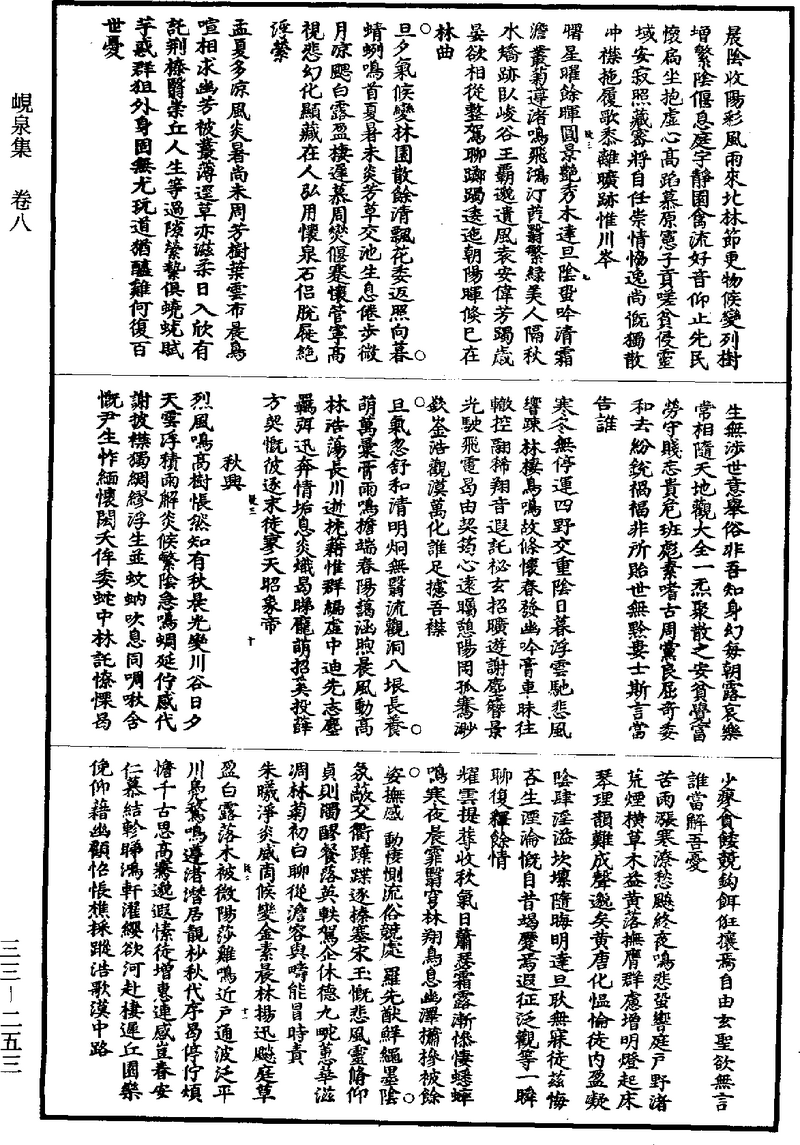 峴泉集　卷八
三三－二五三
晨陰收陽彩風雨來北林節更物候變列樹
增繁陰偃息庭宇靜園禽流好音仰止先民
懷扃坐抱虛心高蹈慕原憲子貢嗟貧侵靈
域安寂照藏密將自任崇情協逸尚慨獨散
冲襟拖履歌黍離曠跡惟川岑
曙星曜餘暉圓景艷秀木達旦陰蛩吟清霜
澹叢菊遵渚鳴飛鴻汀葭翳繁綠美人隔秋
水矯跡臥峻谷王霸邈遺風袁安偉芳躅歲
晏欲相從整駕聊躑躅逶迤朝陽暉倏已在
林曲
旦夕氣候變林園散餘清飄花委返照向暮
蜻蛚鳴首夏暑未炎芳草交池生息倦步微
月凉颸白露盈棲遲慕周爕偃蹇懷管寧高
視悲幻化顯藏在人弘用懷泉石侣脫屣絶
滛縈
孟夏多凉風炎暑尚未周芳樹葉雲布晨鳥
喧相求幽芳被叢薄遝草亦滋柔日入欣有
託荆榛翳崇丘人生等過隙縈繫俱蟯蚘賦
芧感群狙外身固無尤玩道猶醯雞何復百
世憂
生無涉世意舉俗非吾知身幻每朝露哀樂
常相隨天地觀大全一炁聚散之安貧覺富
勞守賤忘貴危班彪素嗜古周黨良屈奇委
和去紛銳禍福非所貽世無黔婁士斯言當
告誰
寒冬無停運四野交重陰日暮浮雲馳悲風
響疎林棲鳥鳴故條懷春發幽吟膏車昧往
轍控翮稀翔音遐託秘玄招曠遊謝塵簪景
光駛飛電曷由契筠心遠矚憩陽岡孤騫渺
欽崟浩觀漠萬化誰足攄吾襟
旦氣忽舒和清明炯無翳流觀洞八垠長養
萌萬彙膏雨鳴擔端春陽藹涵煦晨風動高
林浩蕩長川逝枕藉惟群編虛中迪先志塵
羈弭迅奔情垢息炎熾曷睇龐萌招莫投薛
方契慨彼逐末徒寥天昭象帝
秋興
烈風鳴高樹悵然知有秋晨光變川谷日夕
天雲浮積雨解炎候繁陰急鳴蜩延佇感代
謝披襟獨綢繆浮生並蚊蚋吹息同啁啾含
慨尹生怍緬懷閎夭侔委蛇中林託憭慄曷
少瘳貪餒競鈎餌狂攘焉自由玄聖欲無言
誰當解吾憂
苦雨漲寒潦愁飈終夜鳴悲蛩響庭戶野渚
荒煙橫草木益黄落撫膺群慮增明燈起床
琴理韻難成聲邈矣黄唐化愠惀徒内盈凝
陰肆淫溢坎壈隨晦明達旦耿無寐徒茲悔
吝生湮淪慨自昔竭蹷焉遐征泛觀等一瞬
聊復釋餘情
耀雲提彗收秋氣日蕭瑟霜露漸慘悽蟋蟀
鳴寒夜晨霏翳穹林翔鳥息幽澤橚槮被餘
姿撫感　動悽惻流俗競處　羅先猷鮮繩墨陰
氛敵交衢蹂蹀逐榛塞宋玉慨悲風靈脩仰
貞則濁醪餐落英軼駕企休德九畹蕙華滋
凋林菊初白聊從澹容與疇能冒時責
朱曦淨炎威商候變金素晨林揚迅飈庭草
盈白露落木被微陽莎雞鳴近戶通波泛平
川鳧鶩鳴遵渚潛居靚杪秋代序曷停佇煩
憺千古思高騫邈遐愫徒增惠連感豈春安
仁慕結軫睇鴻軒濯纓欲河赴棲遲丘園樂
俛仰藉幽顧怊悵樵採蹤浩歌漠中路